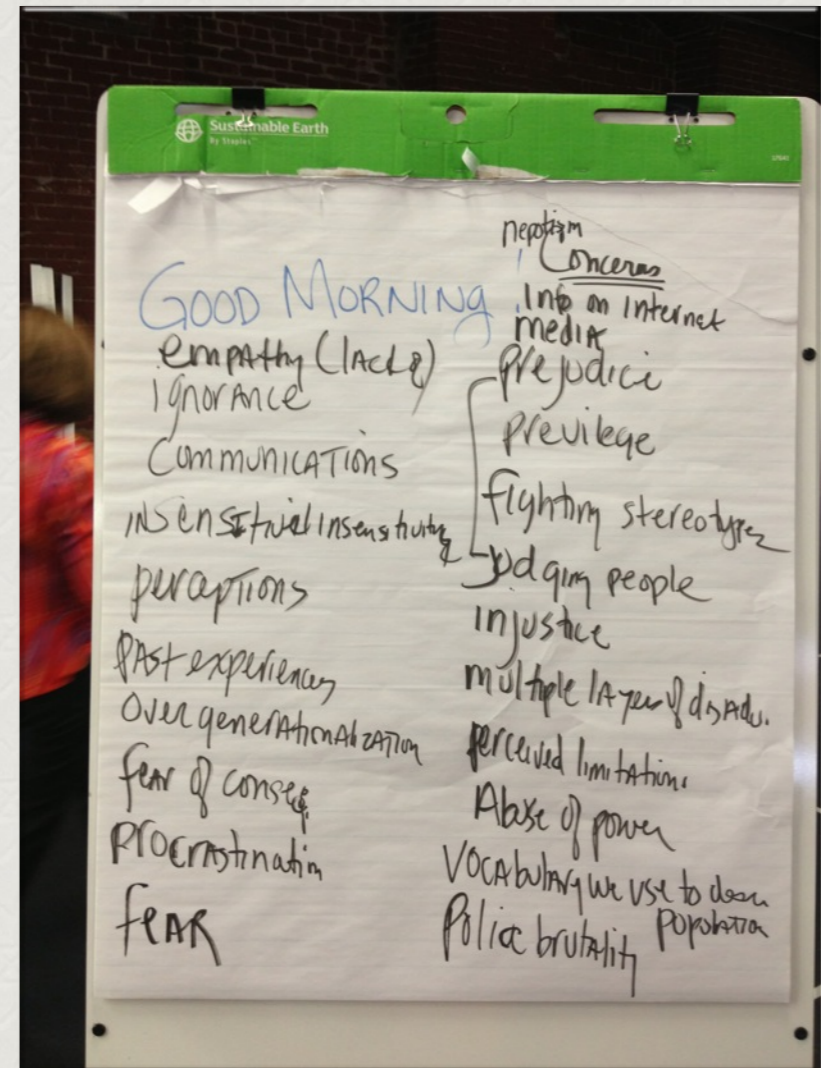 Sustainable Earth
By Staples
GOOD MORNING
empathy (lack of)
ignorance
Communications
insensitive/insensitivity
perceptions
Past experiences
Overgenerationalization
fear of conseq.
Procrastination
fear
nepotism
Concerns
Info on internet
media
prejudice
previlege
fighting stereotypes
Judging people
injustice
multiple layers of disadv.
perceived limitations
Abuse of power
Vocabulary we use to
population
Police brutality